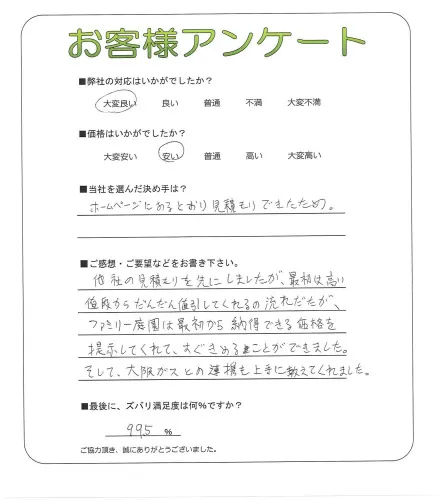 お客様アンケート
■弊社の対応はいかがでしたか？
大変良い 良い 普通 不満 大変不満
■価格はいかがでしたか？
大変安い 安い 普通 高い 大変高い
■当社を選んだ決め手は？
ホームページにあるとおり見積もりできたため。
■ご感想・ご要望などをお書き下さい。
他社の見積もりを先にしましたが、最初は高い
値段からだんだん値引してくれるの流れだが、
ファミリー庭園は最初から納得できる価格を
提示してくれて、すぐきめることができました。
そして、大阪ガスとの連携も上手に教えてくれました。
■最後に、ズバリ満足度は何％ですか？
99.5 %
ご協力頂き、誠にありがとうございました。